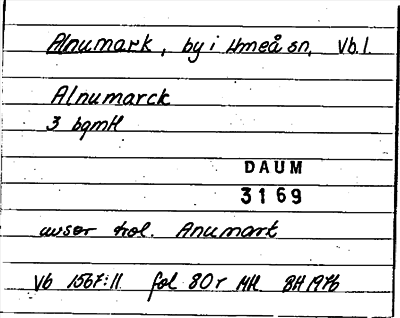 Alnumark, by i Umeå sn, Vb.l.
Alnumarck
3 bgmH
DAUM
3169
avser trol. Anumark
Vb 1567:11 fol 80r MH BH 1976